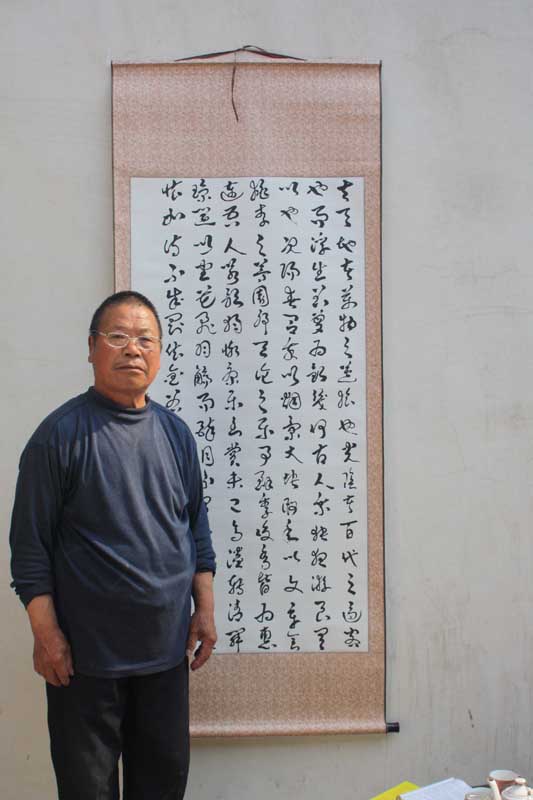 夫天地者萬物之逆旅也光陰者百代之過客
也而浮生若夢為歡幾何古人秉燭夜遊良有
以也況陽春召我以煙景大塊假我以文章會
桃李之芳園序天倫之樂事群季俊秀皆為惠
連吾人詠歌獨慚康樂幽賞未已高談轉清開
瓊筵以坐花飛羽觴而醉月不有
懷如詩不成罰依金谷